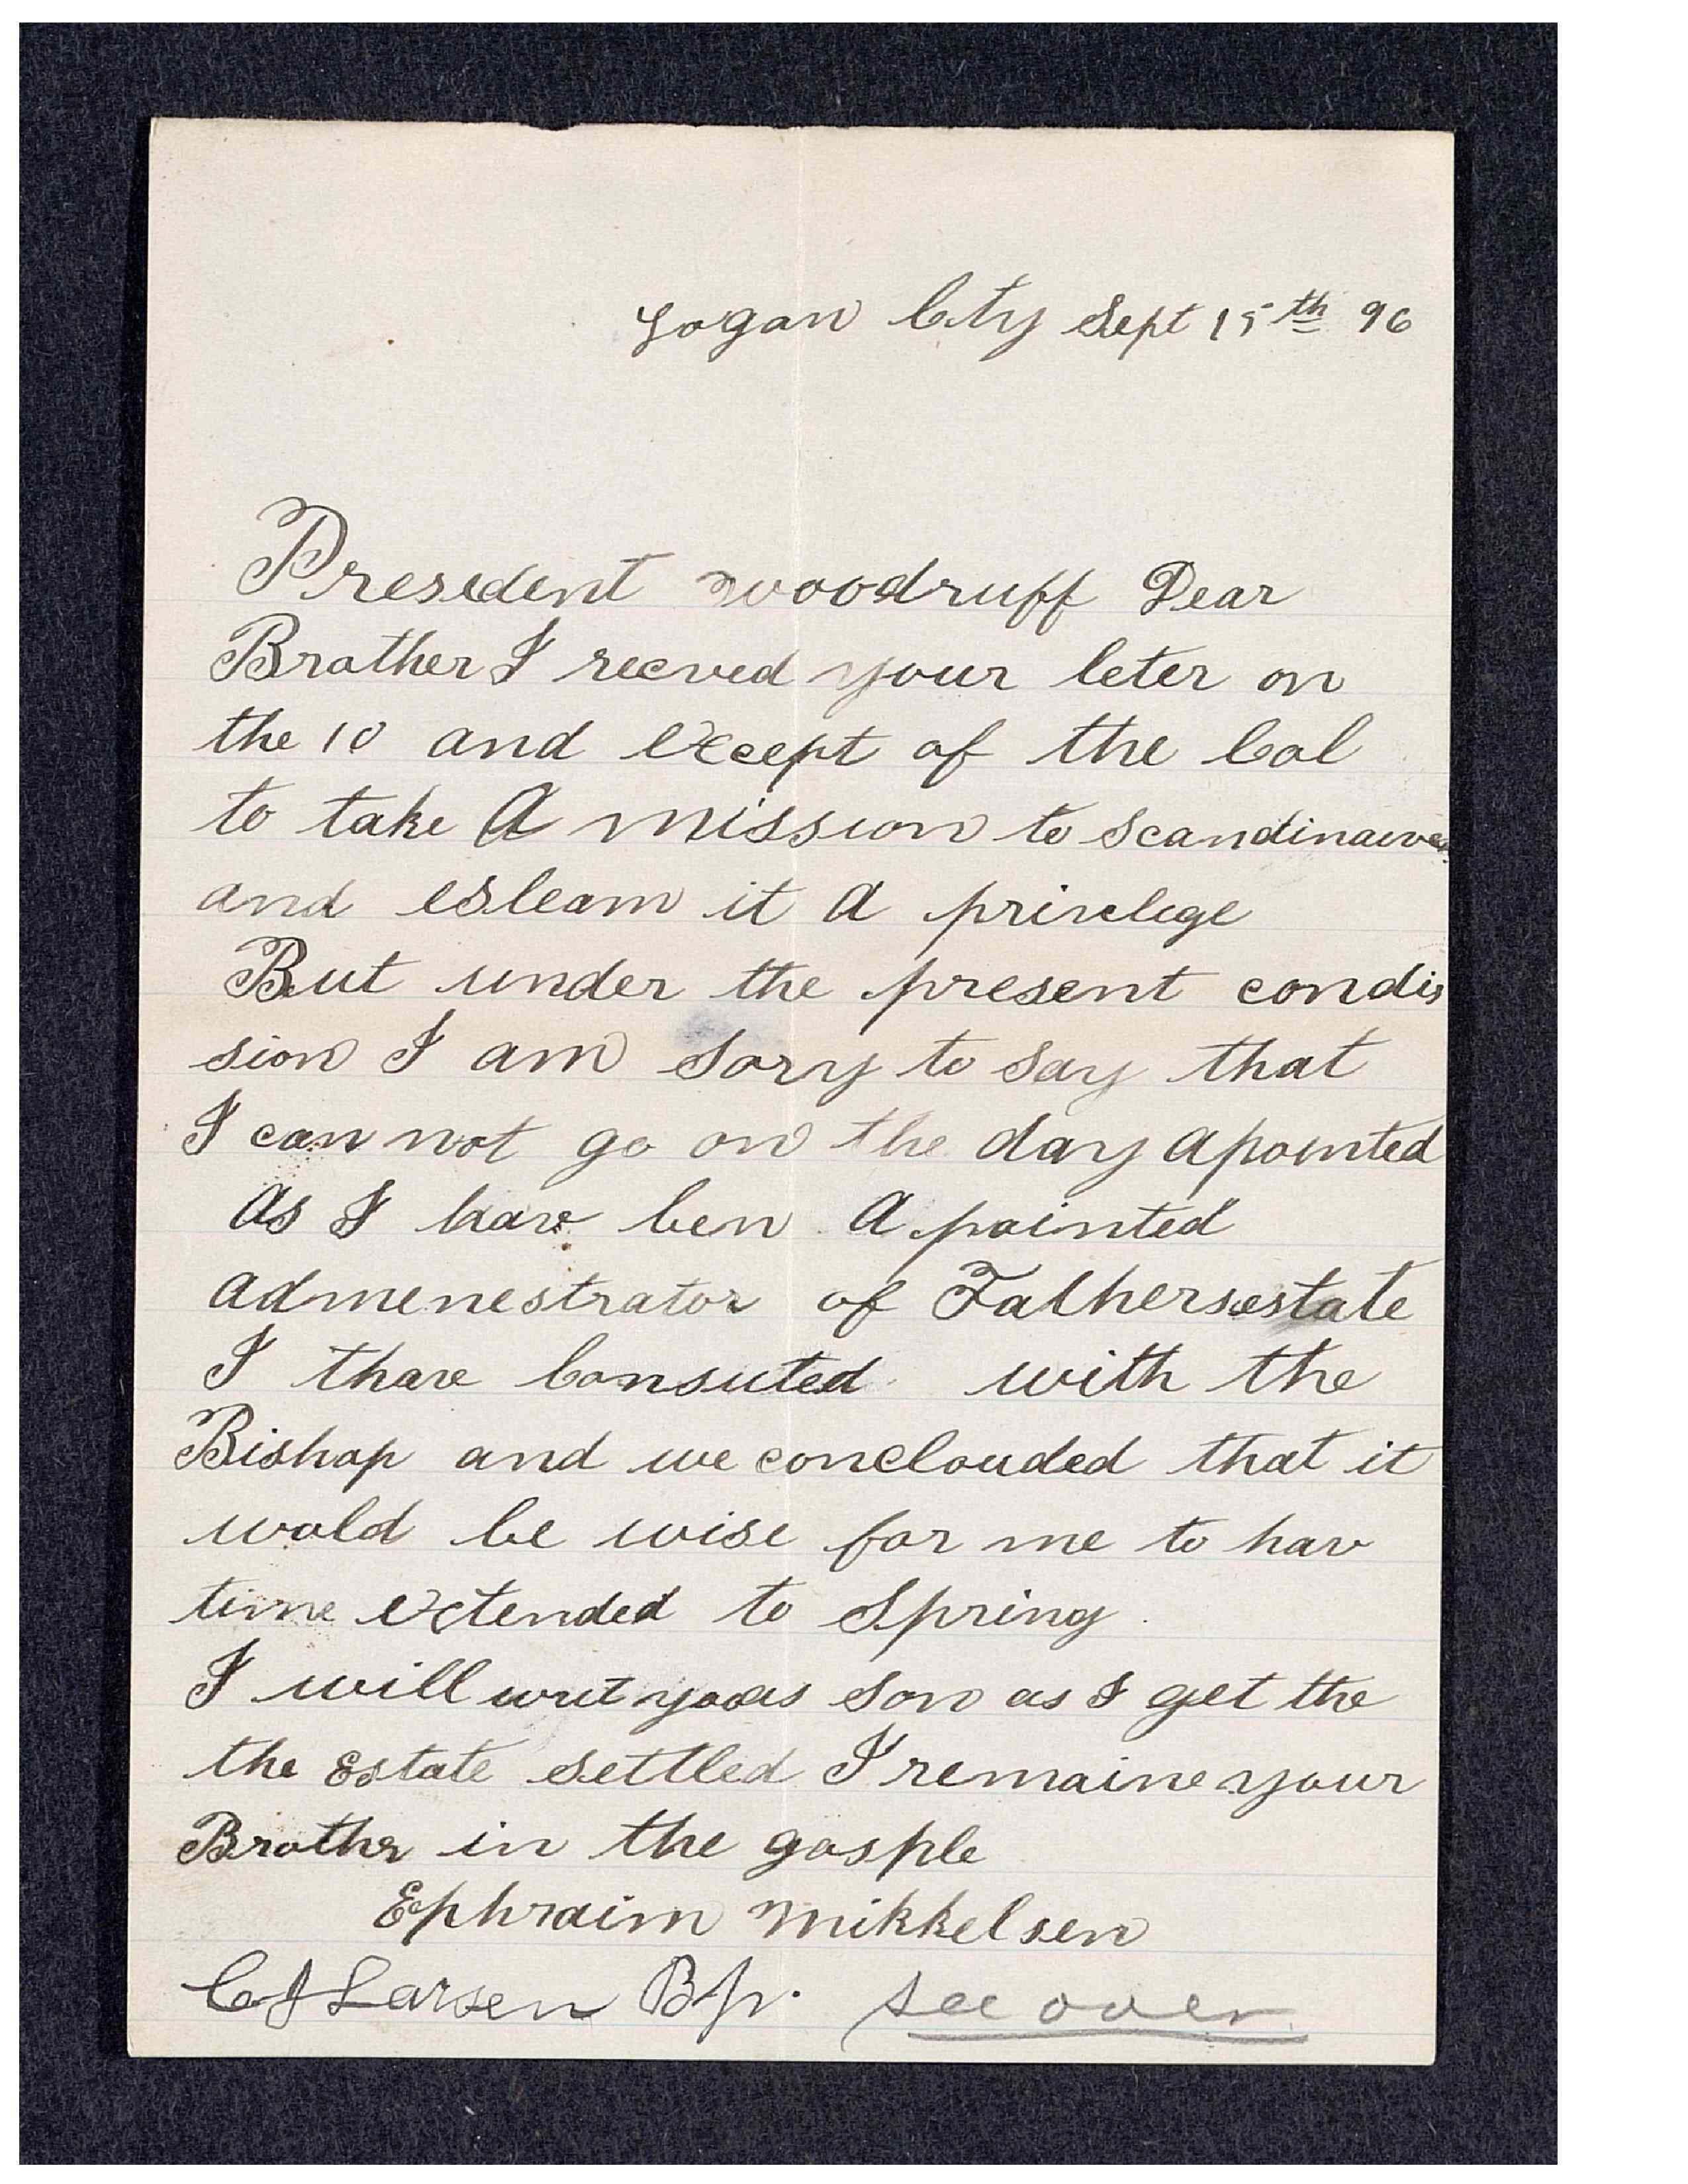 Logan City Sept 15th 96
Presedent woodruff Dear
Brother I reeved your leter on
the 10 and except of the Col
to take A mission to Scandinavea
and esteam it A privelege
But under the present condis
sion I am Sory to Say that
I can not go on the day apointed
As I have ben A pointed
admenestrator of Fathers estate
I have Consuted with the
Bishop and we conclouded that it
wold be wise for me to hav
time extended to Spring
I will writ you as Son as I get the
the Estate settled I remaine your
Brothr in the gosple
Ephraim Mikkelsen
C J Larsen Bp. see over